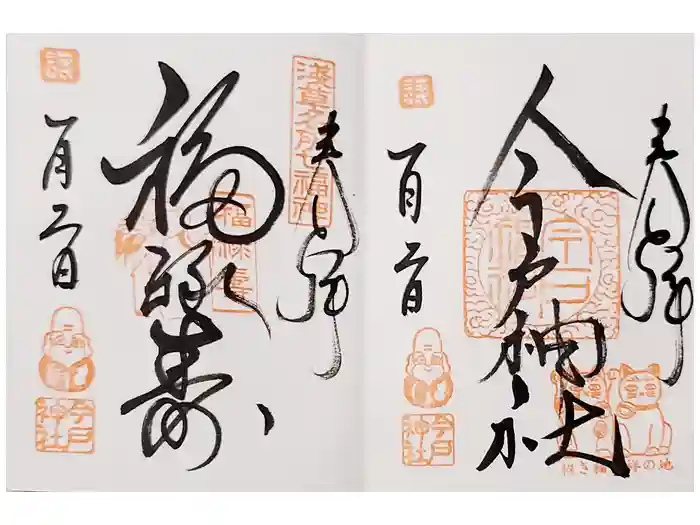 奉拝
今戸神社
今戸神社
招き猫発祥の地
一月二日
今戸神社
奉拝
淺草名所七福神
福禄寿
福禄寿
一月二日
今戸神社